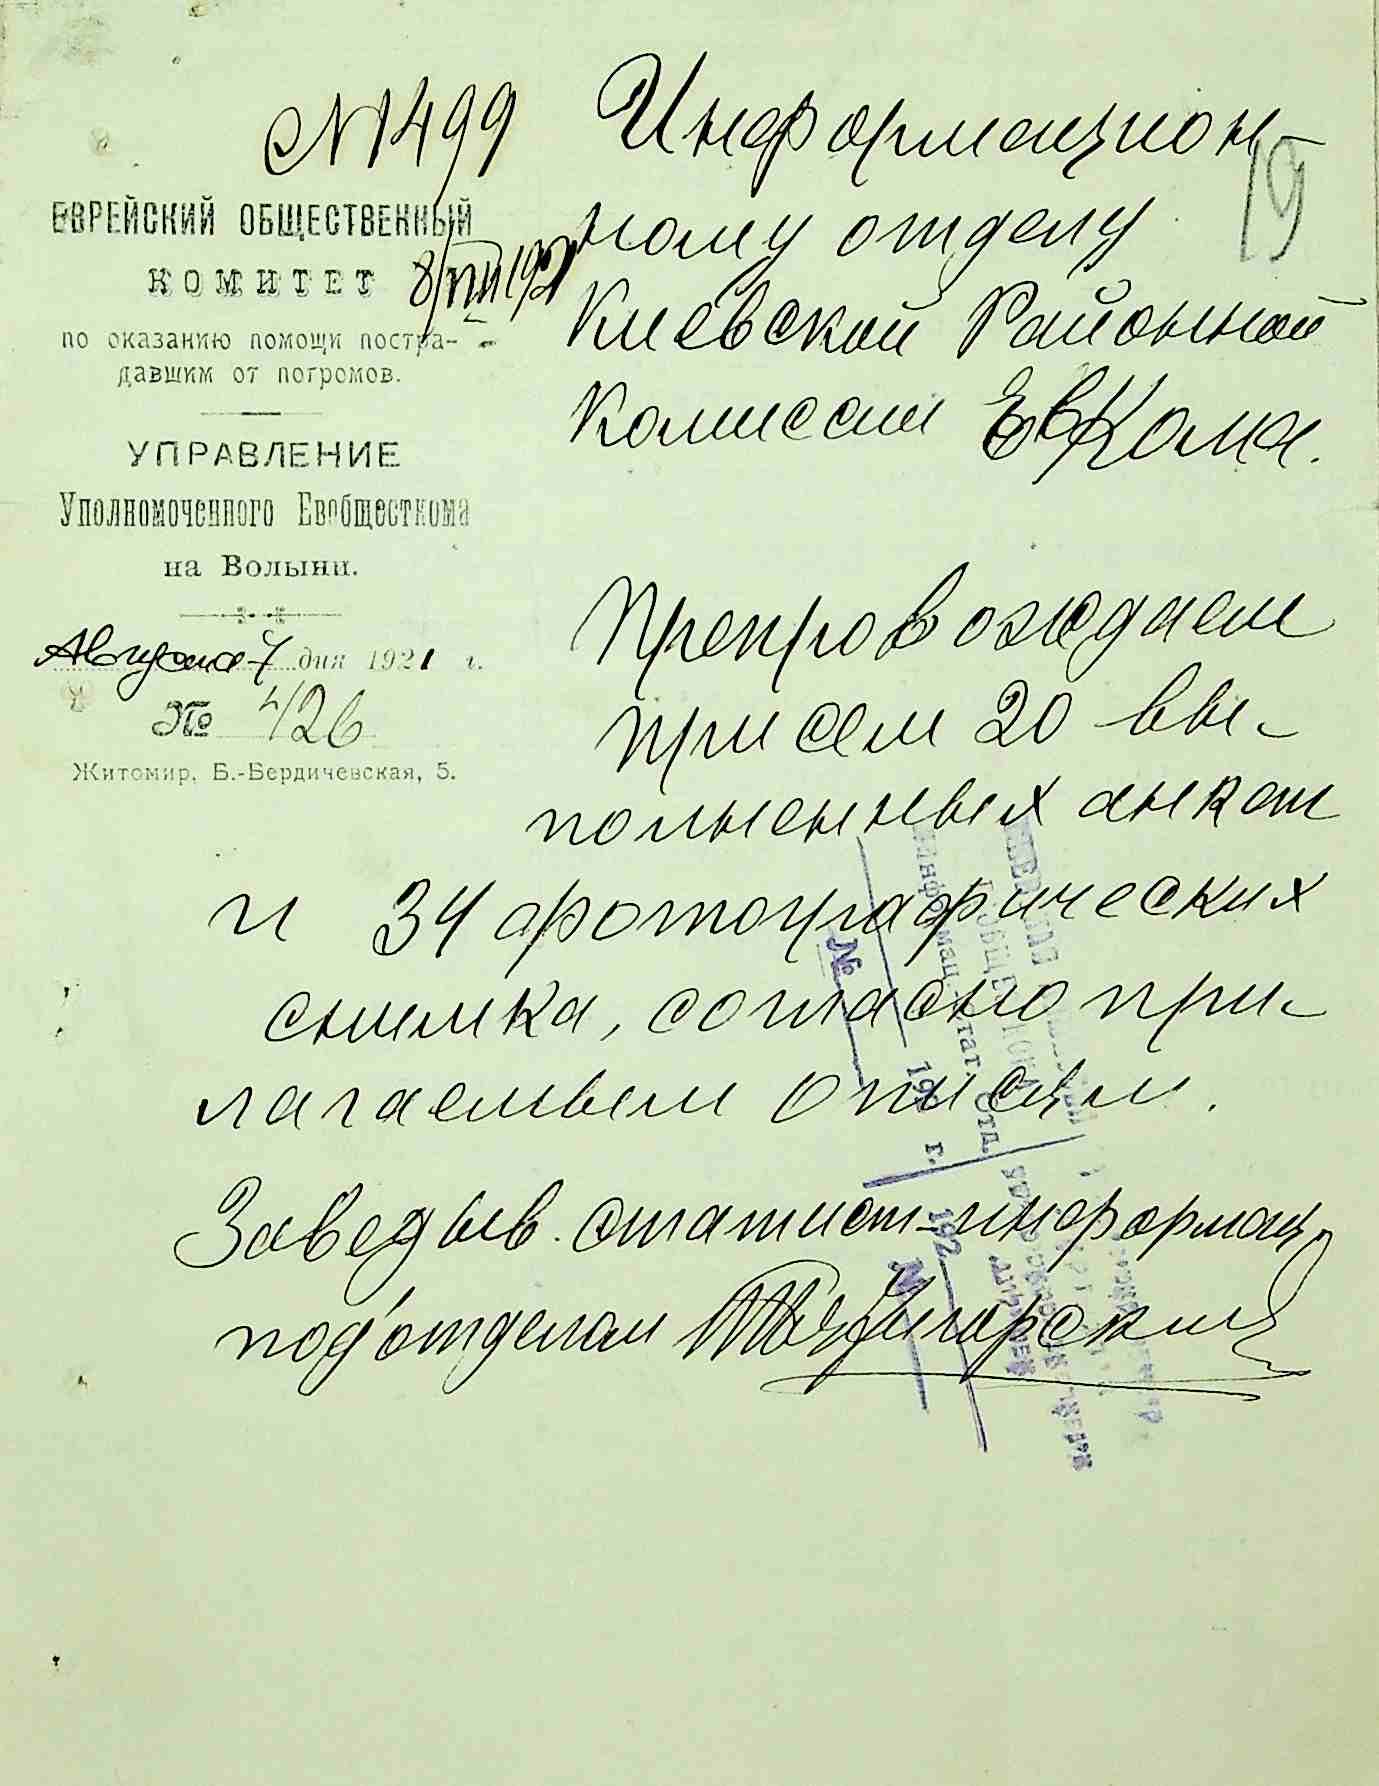 № 1499
8/VIII 1921
19
ЕВРЕЙСКИЙ ОБЩЕСТВЕННЫЙ
КОМИТЕТ
по оказанию помощи постра-
давшим от погромов.
УПРАВЛЕНИЕ
Уполномоченного Евобщесткома
на Волыни.
Августа 7 дня 1921 г.
№ 426
Житомир, Б.-Бердичевская, 5.
Информацион-
ному отделу
Киевской Районной
Комиссии ЕвКома.
Препровождаем
при сем 20 вы-
полненных анкет
и 34 фотографических
снимка, согласно при-
лагаемым описям.
Заведыв. статист-информац.
под'отделом
№
192 г.
192
№